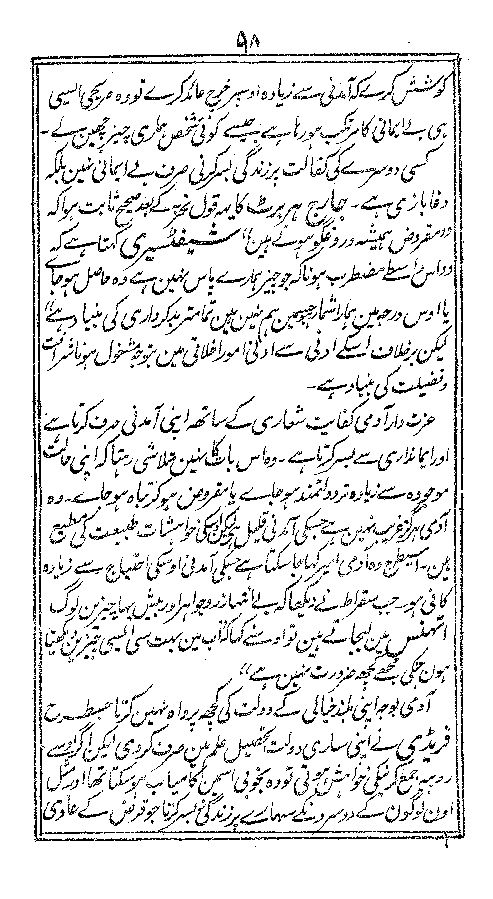 ۵۸
کوشش کرے کہ آمدنی سے زیادہ اوسپر خرچ عائد کرے تو وہ صریحی ایسی
ہی بے ایمانی کا مرتکب ہو رہا ہے جیسے کوئی شخص ہماری چیز چھین لے ۔
کسی دوسرے کی کفالت پر زندگی بسر کرنی صرف بے ایمانی نہین بلکہ
دغا بازی ہے ۔ جارج ہربرٹ کا یہ قول تجربہ کے بعد صحیح ثابت ہوا کہ
"مقروض ہمیشہ دروغگو ہوتے ہین" شیفٹسبری کہتا ہے کہ
"اس واسطے مضطرب ہونا کہ جو چیز ہمارے پاس نہین ہے وہ حاصل ہو جاے
یا اوس درجہ مین ہمارا شمار ہو جسمین ہم نہین ہین تمامتر بد کرداری کی بنیاد ہے"
لیکن برخلاف اسکے ادنی سے ادنی امور اخلاقی مین بتوجہ مشغول ہونا شرافت
و فضیلت کی بنیاد ہے ۔
عزت دار آدمی کفایت شعاری کے ساتھ اپنی آمدنی صرف کرتا ہے
اور ایمانداری سے بسر کرتا ہے ۔ وہ اس بات کا نہین متلاشی رہتا کہ اپنی حالت
موجودہ سے زیادہ تر دولتمند ہو جاے یا مقروض ہو کر تباہ ہو جاے ۔ وہ
آدمی ہرگز غریب نہین ہے جسکی آمدنی قلیل ہے لیکن اوسکی خواہشات طبیعت کی مطیع
ہین ۔ اسیطرح وہ آدمی امیر کہا جا سکتا ہے جسکی آمدنی اوسکی احتیاج سے زیادہ
کافی ہو ۔ جب سقراط نے دیکھا کہ بے انتہا زر و جواہر اور بیش بہا چیزین لوگ
اتھنس مین لیجاتے ہین تو اوسنے کہا کہ "اب مین بہت سی ایسی چیزین دیکھتا
ہون جنکی مجھے کچھ ضرورت نہین ہے"
آدمی بوجہ اپنی بلند خیالی کے دولت کی کچھ پرواہ نہین کرتا جسطرح
فریڈی نے اپنی ساری دولت تحصیل علم مین صرف کر دی لیکن اگر اوسے
روپیہ جمع کرنیکی خواہش ہوتی تو وہ بخوبی اسمین کامیاب ہو سکتا تھا اور مثل
اون لوگون کے دوسرونکے سہارے پر زندگی بسر کرتا جو قرض کے عادی